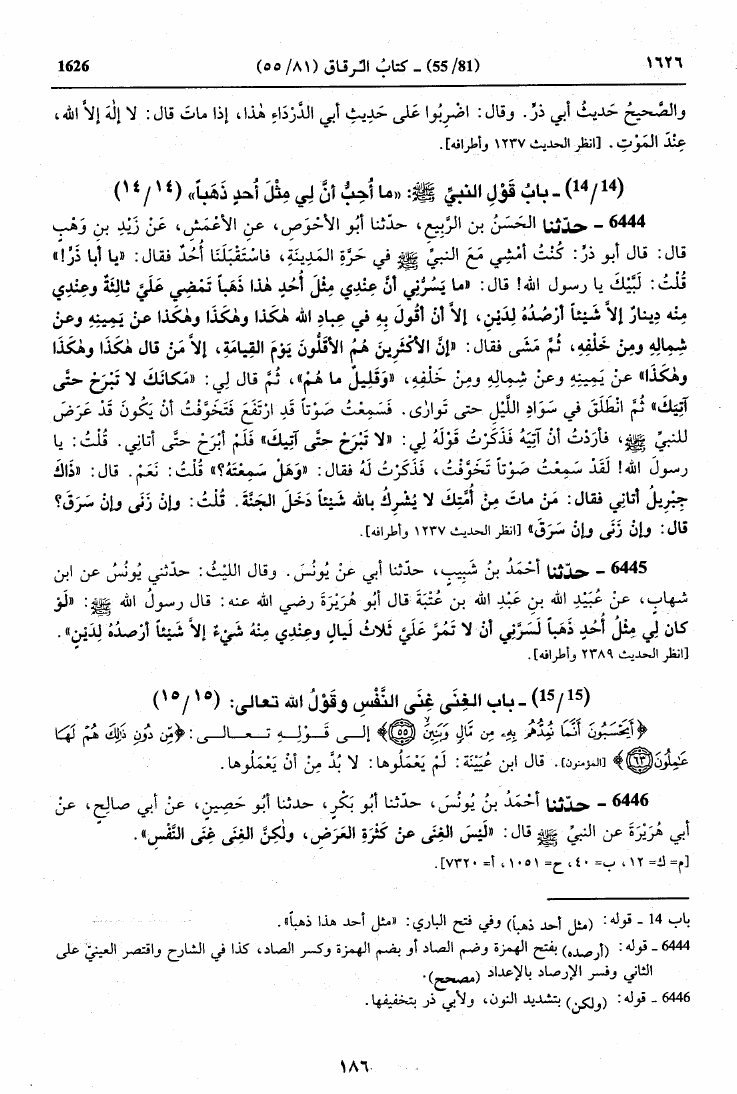 1626 (55/81) ـ كتابُ الـرقاق (٥٥/٨١) ١٦٢٦
والصَّحيحُ حَديثُ أبي ذرٍّ. وقال: اضْرِبُوا عَلى حَدِيثِ أبي الدَّرْدَاءِ هٰذا، إذا ماتَ قال: لا إلٰهَ إلاَّ الله،
عِنْدَ المَوْتِ. [انظر الحديث ١٢٣٧ وأطرافه].
(14/14) ـ بابُ قَوْلِ النبيِّ ﷺ: «ما أُحِبُّ أنَّ لِي مِثْلَ أُحدٍ ذَهَباً» (١٤/١٤)
6444 ـ حدّثنا الحَسَنُ بن الرَّبِيعِ، حدّثنا أبُو الأحْوَصِ، عنِ الأعْمَشِ، عَنْ زَيْدِ بنِ وَهْبٍ
قال: قال أبو ذرّ: كُنْتُ أمْشِي مَعَ النبيِّ ﷺ في حَرَّةِ المَدِينَةِ، فاسْتَقْبَلَنَا أُحُدٌ فقال: «يا أبا ذَرٍّ!»
قُلْتُ: لَبَّيْكَ يا رسول الله! قال: «ما يَسُرُّنِي أنَّ عِنْدِي مِثْلَ أُحُدٍ هٰذا ذَهَباً تَمْضِي عَلَيَّ ثالِثَةٌ وعِنْدِي
مِنْه دِينارٌ إلاَّ شَيْئاً أرْصُدُهُ لِدَيْنٍ، إلاَّ أنْ أقُولَ بِهِ في عِبادِ الله هٰكَذا وهٰكَذا وهٰكَذا عنْ يَمِينِهِ وعنْ
شِمالِهِ ومِنْ خَلْفِهِ، ثُمَّ مَشَى فقال: «إنَّ الأكْثَرِينَ هُمُ الأقَلُّونَ يَوْمَ القِيامَةِ، إلاَّ مَنْ قال هٰكَذا وهٰكَذا
وهٰكَذا» عنْ يَمِينِهِ وعنْ شِمالِهِ ومِنْ خَلْفِهِ، «وَقَلِيلٌ ما هُمْ»، ثُمَّ قال لِي: «مَكانَكَ لا تَبْرَحْ حتَّى
آتِيَكَ» ثُمَّ انْطَلَقَ في سَوَادِ اللَّيْلِ حتى تَوارَى. فَسَمِعْتُ صَوْتاً قَدِ ارْتَفَعَ فَتَخَوَّفْتُ أنْ يَكُونَ قَدْ عَرَضَ
للنبيِّ ﷺ، فأرَدْتُ أنْ آتِيَهُ فَذَكَرْتُ قَوْلَهُ لِي: «لا تَبْرَحْ حتَّى آتِيكَ» فَلَمْ أبْرَحْ حتَّى أتاني. قُلْتُ: يا
رسولَ الله! لَقَدْ سَمِعْتُ صَوْتاً تَخَوَّفْتُ، فَذَكَرْتُ لَهُ فقال: «وَهَلْ سَمِعْتَهُ؟» قُلْتُ: نَعَمْ. قال: «ذَاكَ
جِبْرِيلُ أتاني فقال: مَنْ ماتَ مِنْ أُمَّتِكَ لا يُشْرِكُ بالله شَيْئاً دَخَلَ الجَنَّةَ. قُلْتُ: وإنْ زَنَى وإنْ سَرَقَ؟
قال: وإنْ زَنَى وإنْ سَرَقَ» [انظر الحديث ١٢٣٧ وأطرافه].
6445 ـ حدّثنا أحْمَدُ بنُ شَبِيبٍ، حدّثنا أبي عنْ يُونُسَ. وقال الليْثُ: حدّثني يُونُسُ عن ابن
شهابٍ، عنْ عُبَيْدِ الله بنِ عَبْدِ الله بن عُتْبَةَ قال أبُو هُرَيْرَةَ رضي الله عنه: قال رسولُ الله ﷺ: «لَوْ
كان لِي مِثْلُ أُحُدٍ ذَهَباً لَسَرَّنِي أنْ لا تَمُرَّ عَلَيَّ ثَلاثُ لَيالٍ وعِنْدِي مِنْهُ شَيْءٌ إلاَّ شَيْئاً أرْصدُهُ لِدَيْنٍ».
[انظر الحديث ٢٣٨٩ وأطرافه].
(15/15) ـ باب الغِنَى غِنَى النَّفْسِ وقَوْلُ الله تعالى: (١٥/١٥)
﴿أَيَحْسَبُونَ أَنَّمَا نُمِدُّهُم بِهِۦ مِن مَّالٍ وَبَنِينَ ۝٥٥﴾ إلـى قَـوْلِـهِ تـعـالـى: ﴿مِّن دُونِ ذَٰلِكَ هُمْ لَهَا
عَٰمِلُونَ ۝٦٣﴾ [المؤمنون]. قال ابن عُيَيْنَة: لَمْ يَعْمَلُوها: لا بُدَّ مِنْ أنْ يَعْمَلُوها.
6446 ـ حدّثنا أحْمَدُ بنُ يُونُسَ، حدّثنا أبُو بَكْرٍ، حدثنا أبُو حَصِينٍ، عنْ أبي صالِحٍ، عنْ
أبي هُرَيْرَةَ عن النبيِّ ﷺ قال: «لَيْسَ الغِنَى عنْ كَثْرَةِ العَرَضِ، ولٰكِنَّ الغِنَى غِنَى النَّفْسِ».
[م= ك= ١٢، ب= ٤٠، ح= ١٠٥١، أ= ٧٣٢٠].
باب 14 ـ قوله: (مثل أحد ذهباً) وفي فتح الباري: «مثل أحد هذا ذهباً».
6444 ـ قوله: (أرصده) بفتح الهمزة وضم الصاد أو بضم الهمزة وكسر الصاد، كذا في الشارح واقتصر العينيّ على
الثاني وفسر الإرصاد بالإعداد (مصحح).
6446 ـ قوله: (ولكن) بتشديد النون، ولأبي ذر بتخفيفها.
١٨٦